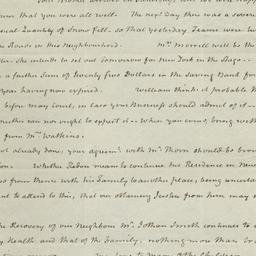 that you were all well. The next day there was a severe
Quantity of Snow fell. so that yesterday Teams were
Roads in this Neighbourhood. Mr. Morrell will be the
She intends to set out tomorrow for New York in the Saga
a further Sum of Twenty five Dollars in the Saving Bank for
year having now expired. William thinks it probable
before may arrive, in case your Business should admit of it —
neither can nor ought to expect it — when you come, bring with
from Mr. Watkins.
not already done, your agreemt. with Mr. Thorn should be
Whether Peter mean to continue his Residence in New
from thence with his Family to another place, being uncertain
to attend to this, that our obtaining Justice from him may
the Recovery of our Neighbour Mr. Jotham Smith continues to
Health and that of the Family, nothing more than
my Love to Mary & the Children